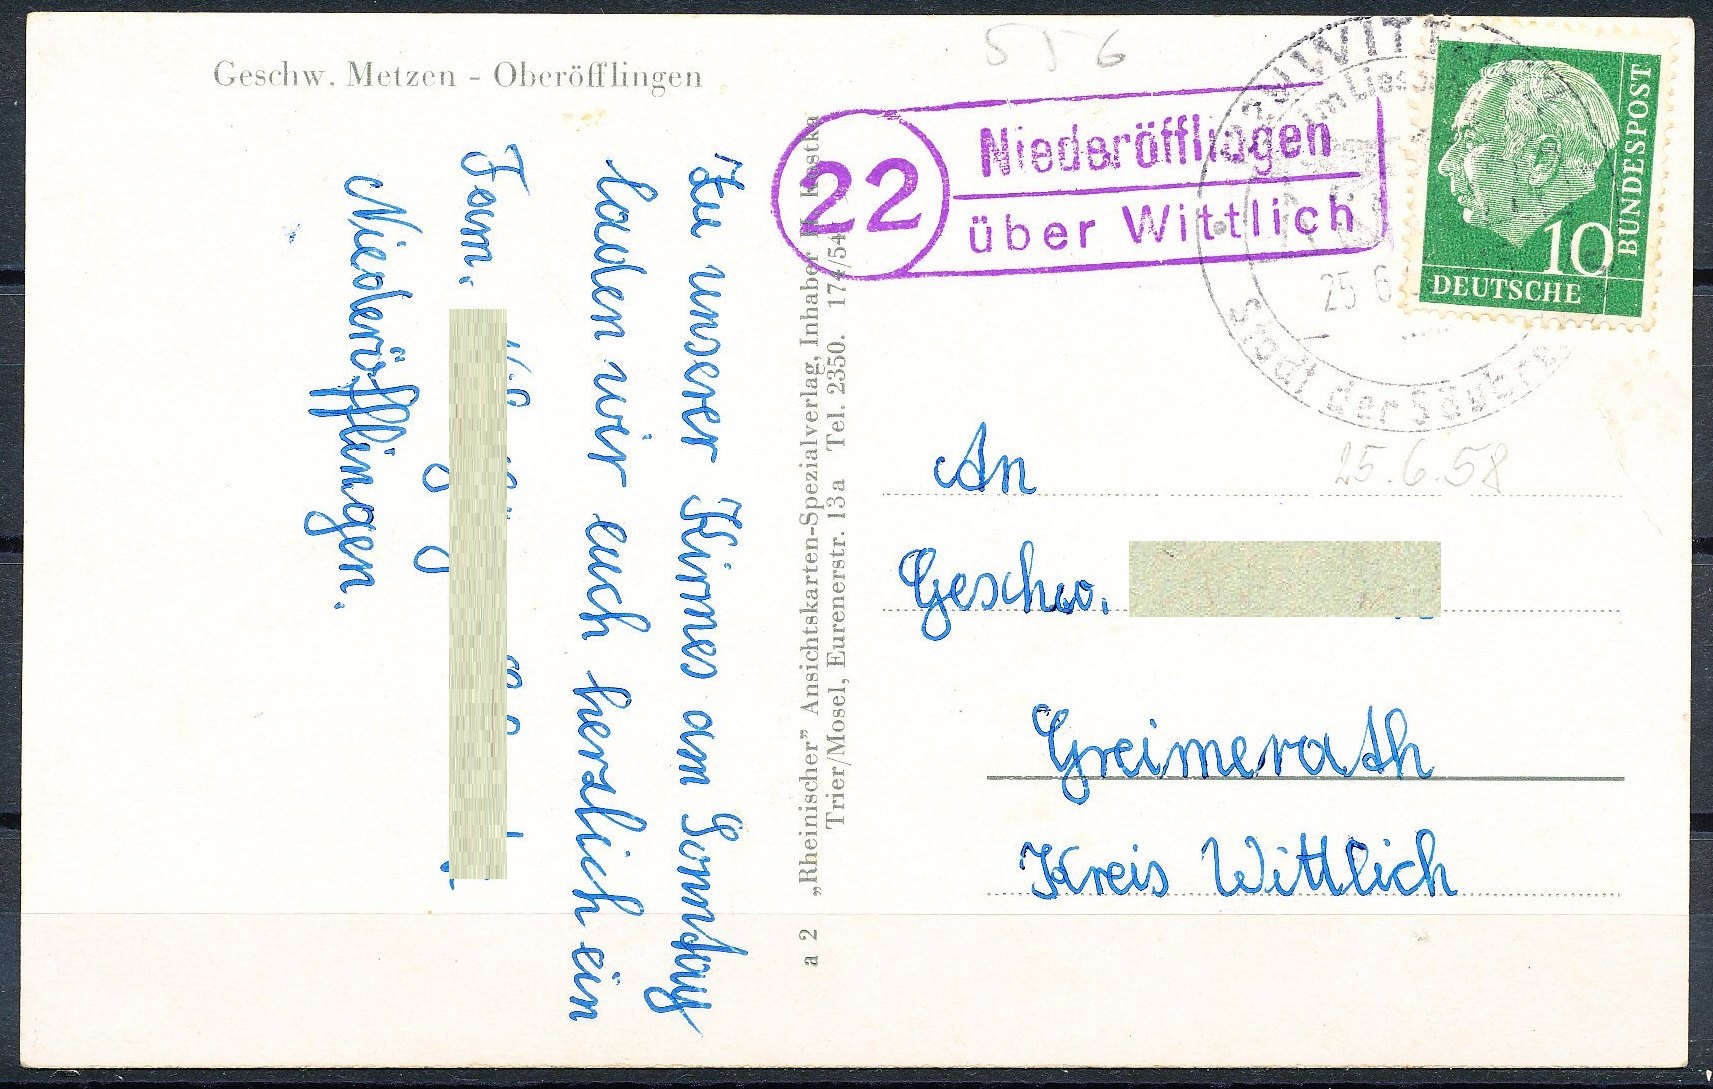 Geschw. Metzen - Oberöfflingen
Zu unserer Kirmes am Sonntag
laden wir euch herzlich ein
Fam.
Niederöfflingen.
a 2 „Rheinischer” Ansichtskarten-Spezialverlag, Inhaber
Trier/Mosel, Eurenerstr. 13a Tel. 2350. 174/54
556
22
Niederöfflingen
über Wittlich
WITT
im Lieser
25 6
Stadt der Säubre
10
BUNDESPOST
DEUTSCHE
25.6.58
An
Geschw.
Greimerath
Kreis Wittlich